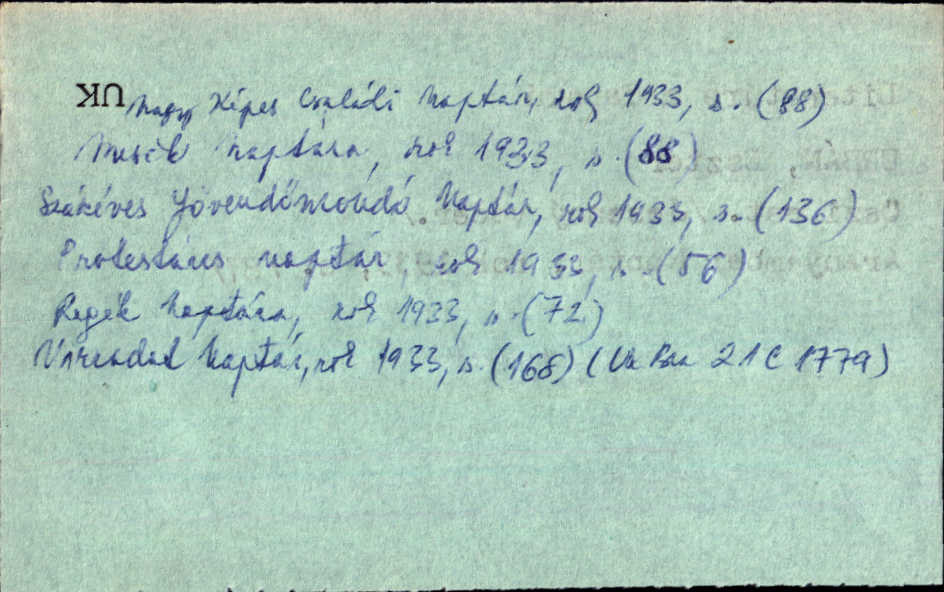 UK Nagy Képes Családi Naptár, rok 1933, s. (88)
Mesék naptára, rok 1933, s. (88)
Százéves Jövendőmondó Naptár, rok 1933, s. (136)
Protestáns naptár, rok 1933, s. (56)
Regék Naptára, rok 1933, s. (72)
Naptár, rok 1933, s. (168) (Uk 21 C 1779)